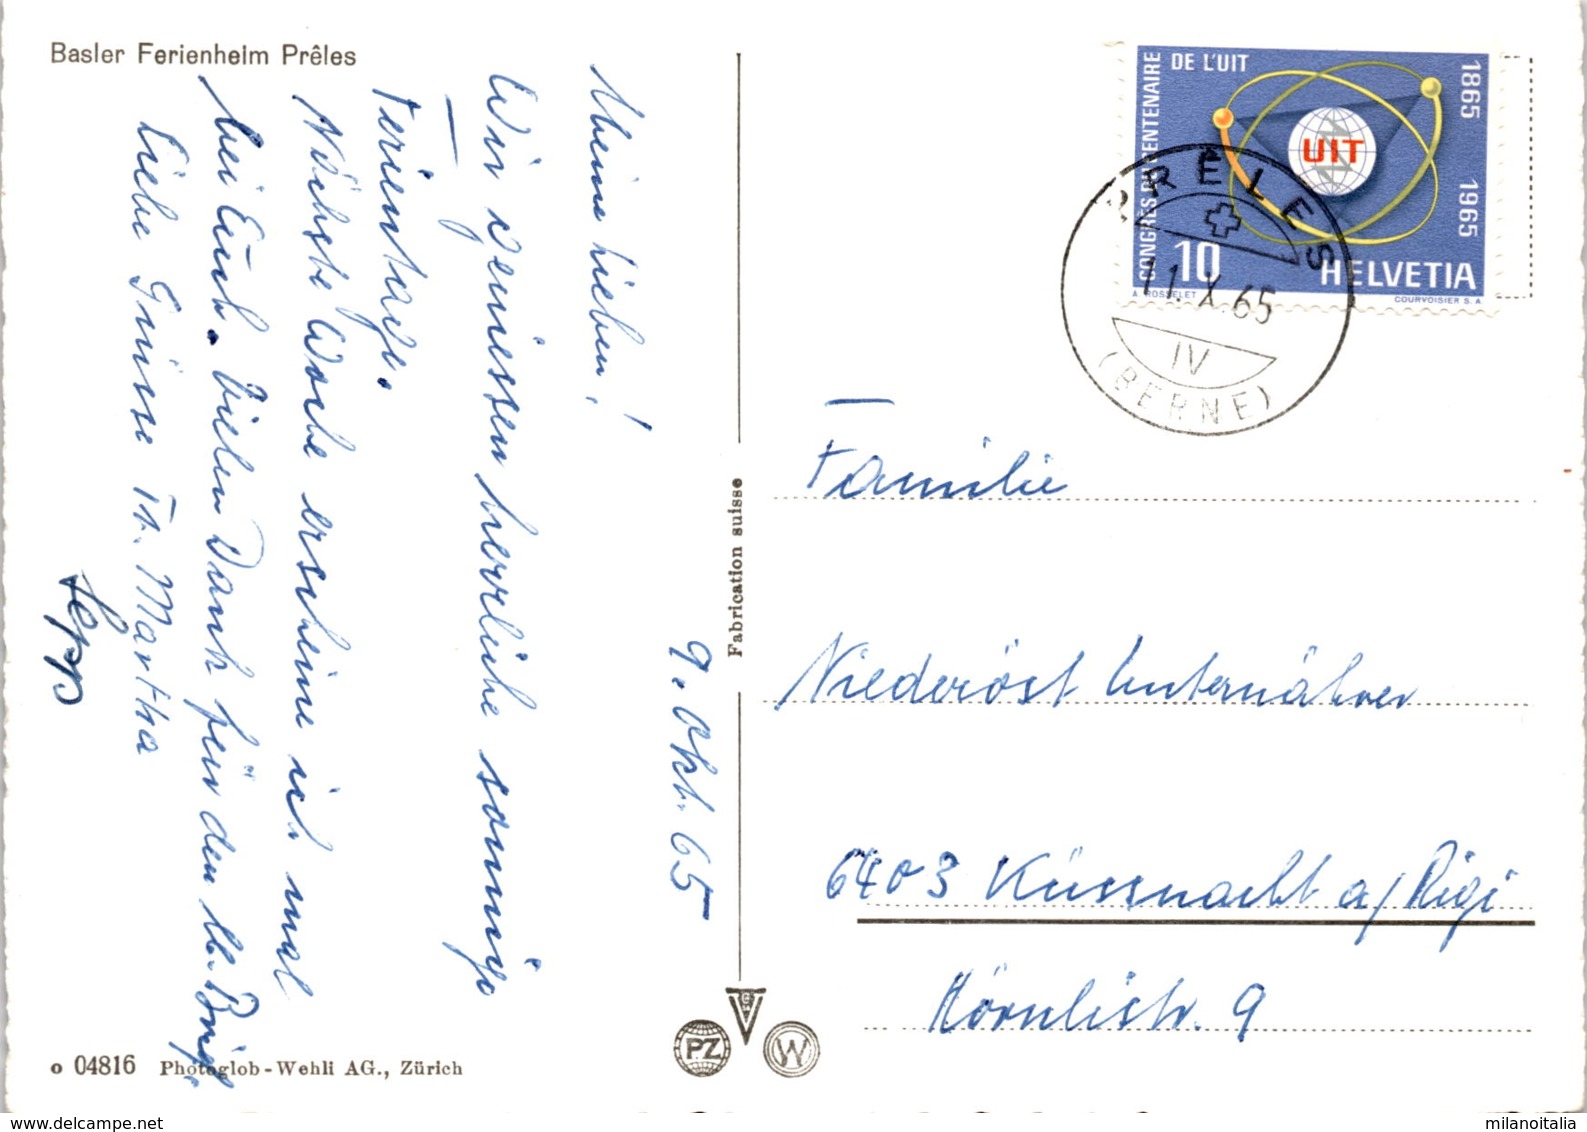 Basler Ferienheim Prêles
9. Okt. 65
Meine Lieben!
Wir geniessen herrliche sonnige
Ferientage.
Nächste Woche erscheine ich mal
bei Euch. Vielen Dank für den lb. Brief.
Liebe Grüsse Fr. Martha
Sepp
o 04816 Photoglob-Wehli AG., Zürich
Fabrication suisse
PZ
W
CONGRÈS DU CENTENAIRE
DE L'UIT
1865 1965
UIT
10
HELVETIA
A. ROSSELET
COURVOISIER S.A
PRÊLES
11.X.65
IV
(BERNE)
Familie
Niederöst Unternährer
6403 Küssnacht a/Rigi
Hörnlistr. 9
milanoitalia